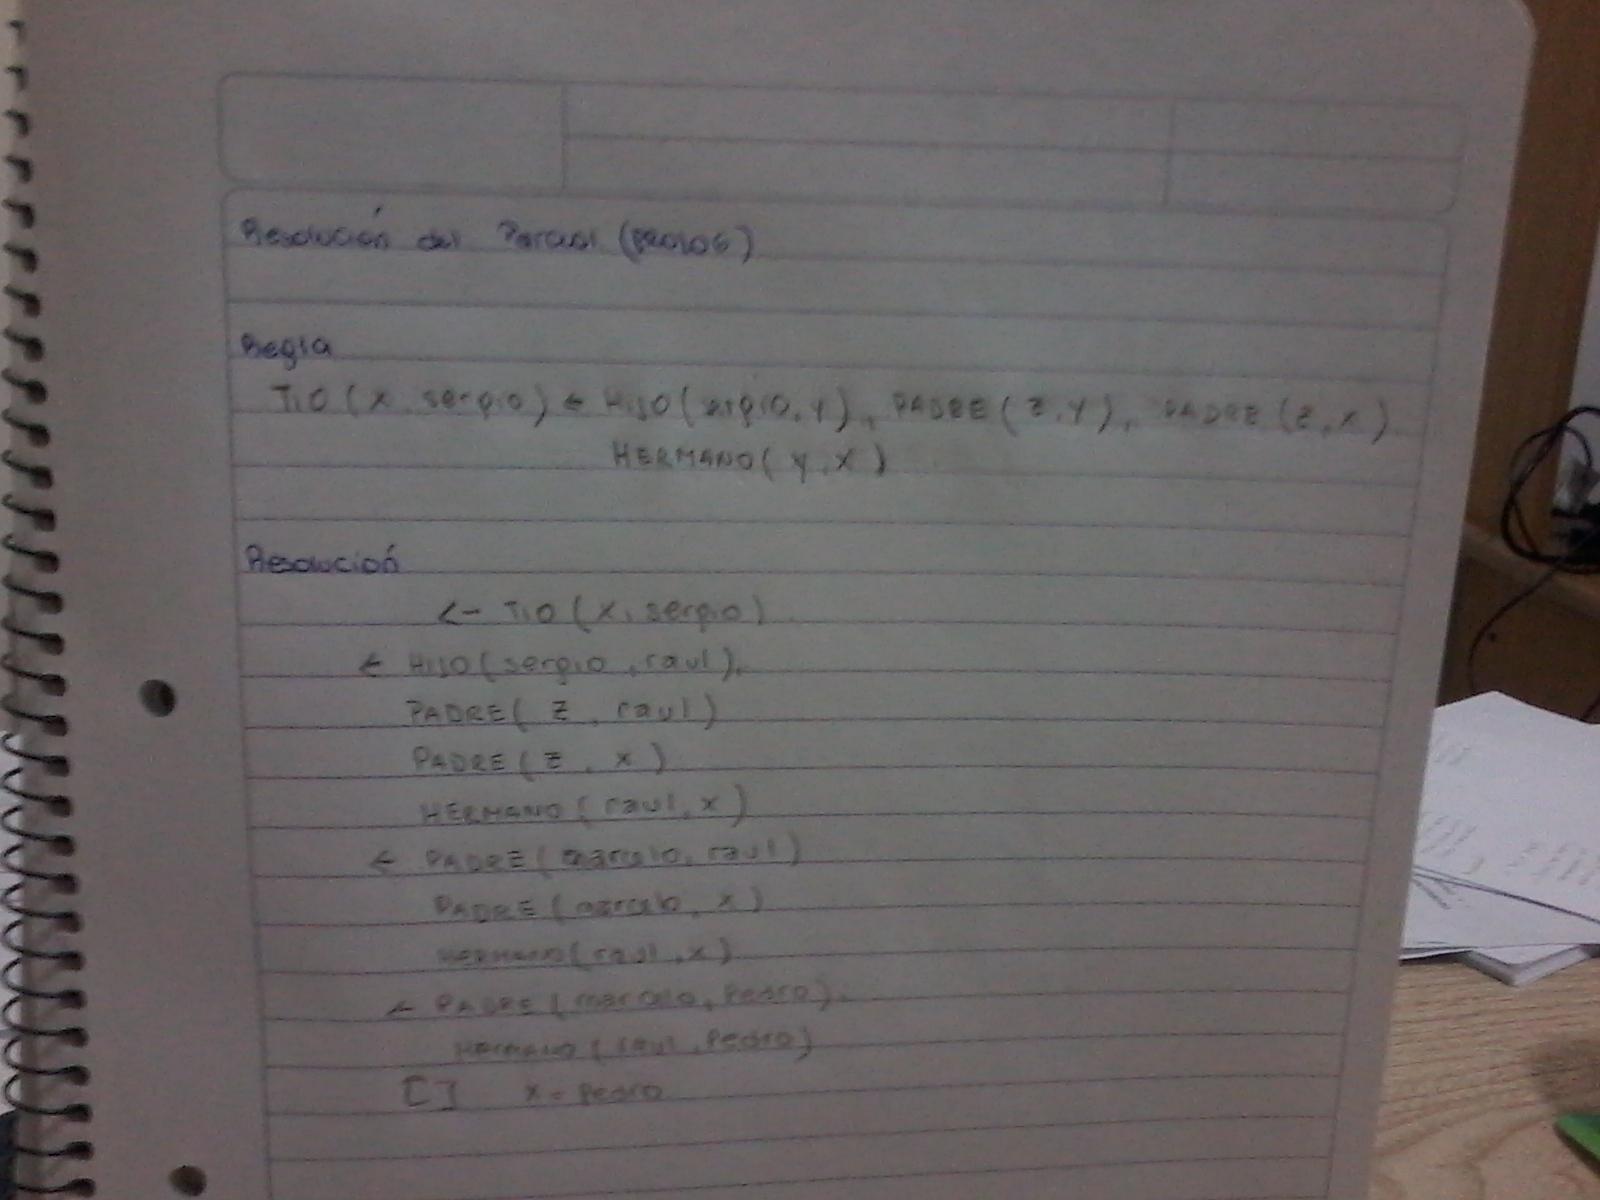 Resolución del Parcial (PROLOG)
Regla
TIO (X, sergio) ← HIJO (sergio, Y), PADRE (Z, Y), PADRE (Z, X).
HERMANO (Y, X)
Resolución
← TIO (X, sergio)
← HIJO (sergio, raul),
PADRE (Z, raul)
PADRE (Z, X)
HERMANO (raul, X)
← PADRE (marcelo, raul)
PADRE (marcelo, X)
HERMANO (raul, X)
← PADRE (marcelo, Pedro),
HERMANO (raul, Pedro)
[] X = Pedro